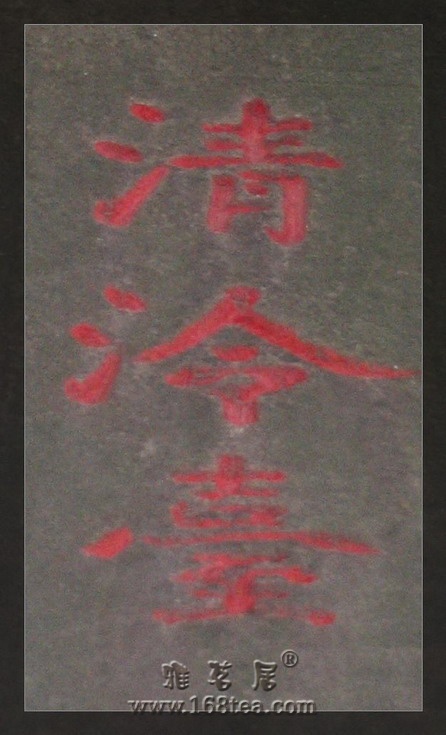 清泠臺
雅茗居®
www.168tea.com